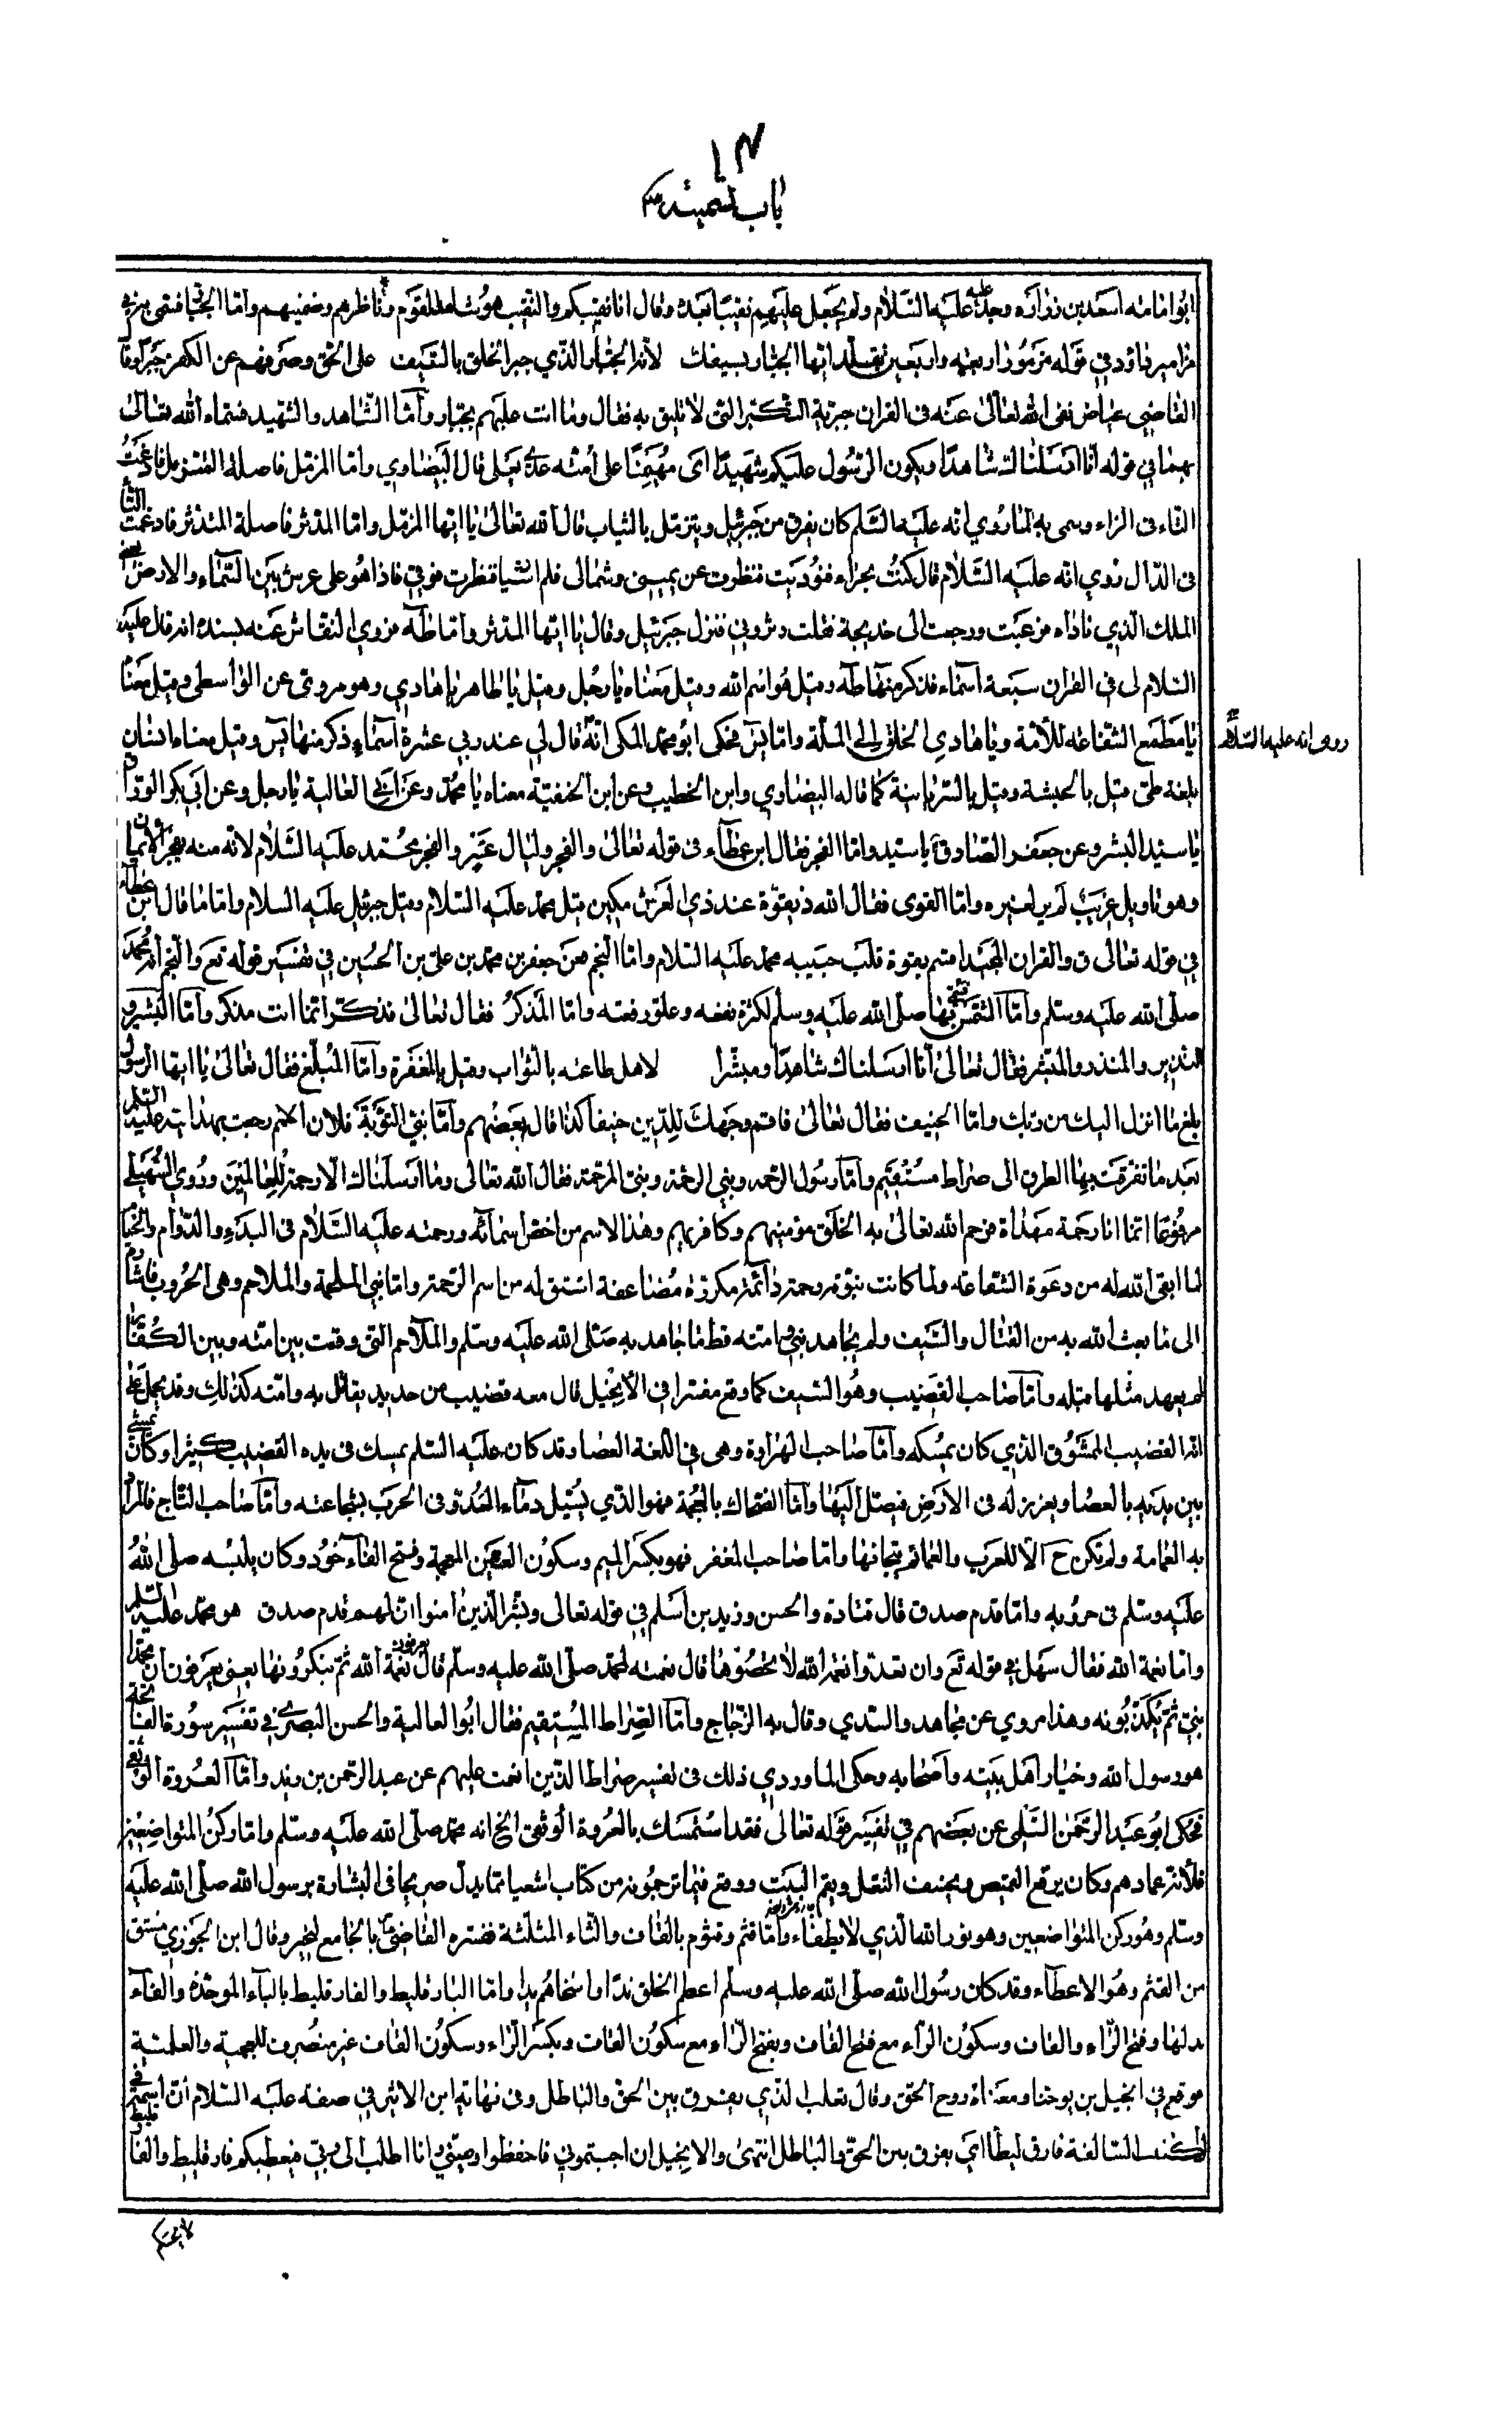 ١٣
باب تسميته
ابو امامة اسعد بن زرارة وجد عليه عليه السلام ولم يجعل عليهم نقيبا بعده وقال انا نقيبكم والنقيب هو شاهد القوم وناظرهم وضمينهم واما الجبار فسمى به في
مزامير داود في قوله من مزمور اربعة واربعين تقلد ايها الجبار بسيفك لانه الجبار الذي جبر الخلق بالسيف على الحق وصرفهم عن الكفر جبرا وقال
القاضي عياض نفى الله تعالى عنه في القران جبرية التكبر التي لا تليق به فقال وما انت عليهم بجبار واما الشاهد والشهيد فسماه الله تعالى
بهما في قوله انا ارسلناك شاهدا ويكون الرسول عليكم شهيدا اى مهيمنا على امته عدى بعلى قال البيضاوي واما المزمل فاصله المتزمل فادغمت
التاء في الزاء وسمى به لما روي انه عليه السلم كان يفرق من جبرئيل ويتزمل بالثياب قال الله تعالى يا ايها المزمل واما المدثر فاصله المتدثر فادغمت التاء
في الدال روي انه عليه السلام قال كنت بحراء فنوديت فنظرت عن يميني وشمالي فلم ار شيا فنظرت فوقي فاذا هو على عرش بين السماء والارض يعني
الملك الذي ناداه فرعبت ورجعت الى خديجة فقلت دثروني فنزل جبرئيل وقال يا ايها المدثر واما طه فروي النقاش عنه بسنده انه قال عليه
السلام لى في القران سبعة اسماء فذكر منها طه وقيل هو اسم الله وقيل معناه يا رجل وقيل يا طاهر يا هادي وهو مروى عن الواسطى وقيل معناه
يا مطمع الشفاعة للأمة ويا هادي الخلق الى الملة واما يس فحكى ابو محمد المكى انه قال لي عند ربي عشرة اسماء ذكر منها يس وقيل معناه انسان
وروى انه عليه السلام
بلغة طى وقيل بالحبشة وقيل بالسريانية كما قاله البيضاوي وابن الخطيب وعن ابن الحنفية معناه يا محمد وعن ابي العالية يا رجل وعن ابي بكر الوراق
يا سيد البشر وعن جعفر الصادق يا سيد واما الفجر فقال ابن عطاء في قوله تعالى والفجر وليال عشر والفجر محمد عليه السلام لانه منه تفجر الايمان
وهو تاويل غريب لم ير لغيره واما القوى فقال الله ذي قوة عند ذي العرش مكين قيل محمد عليه السلام وقيل جبرئيل عليه السلام واما ما قال ابن عطاء
في قوله تعالى ق والقران المجيد اقسم بقوة قلب حبيبه محمد عليه السلام واما النجم فعن جعفر بن محمد بن على بن الحسين في تفسير قوله تع والنجم انه محمد
صلى الله عليه وسلم واما الشمس فسمى بها صلى الله عليه وسلم لكثرة نفعه وعلو رفعته واما المذكر فقال تعالى فذكر انما انت مذكر واما البشير و
النذير والمنذر والمبشر فقال تعالى انا ارسلناك شاهدا ومبشرا لاهل طاعته بالثواب وقيل بالمغفرة واما المبلغ فقال تعالى يا ايها الرسول
بلغ ما انزل اليك من ربك واما الحنيف فقال تعالى فاقم وجهك للدين حنيفا كذا قال بعضهم واما نبي التوبة فلان الامم رجعت بهدايته عليه السلم
بعد ما تفرقت بها الطرق الى صراط مستقيم واما رسول الرحمة ونبي الرحمة ونبي المرحمة فقال الله تعالى وما ارسلناك الا رحمة للعالمين وروي السهيلي
مرفوعا انما انا رحمة مهداة فرحم الله تعالى به الخلق مؤمنهم وكافرهم وهذا الاسم من اخص اسمائه ورحمته عليه السلام في البدء والدوام والختام
لما ابقى الله له من دعوة الشفاعة ولما كانت نبوته رحمة دائمة مكررة مضاعفة اشتق له من اسم الرحمة واما نبي الملحمة والملاحم وهي الحروب فاشارة
الى ما بعث الله به من القتال والسيف ولم يجاهد نبي وامته قط ما جاهد به صلى الله عليه وسلم والملاحم التي وقعت بين امته وبين الكفار
لم يعهد مثلها قبله واما صاحب القضيب وهو السيف كما وقع مفسرا في الانجيل قال معه قضيب من حديد يقاتل به وامته كذلك وقد يحمل على
انه القضيب الممشوق الذي كان يمسكه واما صاحب الهراوة وهي في اللغة العصا وقد كان عليه السلم يمسك في يده القضيب كثيرا وكان يمشى
بين يديه بالعصا ويغرز له في الارض فيصلى اليها واما الضحاك بالمعجمة فهو الذي يسيل دماء العدو في الحرب بشجاعته واما صاحب التاج فالمراد
به العمامة ولم تكن ح الا للعرب والعمائم تيجانها واما صاحب المغفر فهو بكسر الميم وسكون الغين المعجمة وفتح الفاء خود وكان يلبسه صلى الله
عليه وسلم في حروبه واما قدم صدق قال قتادة والحسن وزيد بن اسلم في قوله تعالى وبشر الذين امنوا ان لهم قدم صدق هو محمد عليه السلم
واما نعمة الله فقال سهل في قوله تع وان تعدوا نعمة الله لا تحصوها قال نعمته لمحمد صلى الله عليه وسلم قال يعرفون نعمة الله ثم ينكرونها يعني يعرفون ان محمدا
نبي ثم يكذبونه وهذا مروي عن مجاهد والسدي وقال به الزجاج واما الصراط المستقيم فقال ابو العالية والحسن البصرى في تفسير سورة الفاتحة
هو رسول الله وخيار اهل بيته واصحابه وحكى الماوردي ذلك في تفسير صراط الذين انعمت عليهم عن عبد الرحمن بن زيد واما العروة الوثقى
فحكى ابو عبد الرحمن السلمى عن بعضهم في تفسير قوله تعالى فقد استمسك بالعروة الوثقى الخ انه محمد صلى الله عليه وسلم واما ركن المتواضعين
فلأنه عمادهم وكان يرقع القميص ويخصف النعل ويقم البيت ووقع فيما ترجموه من كتاب اشعيا مما يدل صريحا في البشارة برسول الله صلى الله عليه
وسلم وهو ركن المتواضعين وهو نور الله الذي لا يطفاء واما قثم وقثوم بالقاف والثاء المثلثة ففسره القاضي بالجامع للخير وقال ابن الجوزي مشتق
من القثم وهو الاعطاء وقد كان رسول الله صلى الله عليه وسلم اعظم الخلق ندا واسخاهم يدا واما البارقليط والفارقليط بالباء الموحدة والفاء
بدلها وفتح الراء والقاف وسكون الراء مع فتح القاف وبفتح الراء مع سكون القاف وبكسر الراء وسكون القاف غير منصرف للعجمة والعلمية
فوقع في انجيل بن يوحنا ومعناه روح الحق وقال ثعلب الذي يفرق بين الحق والباطل وفي نهاية ابن الاثير في صفة عليه السلام ان اسمه في
الكتب السالفة فارق ليطا اي يفرق بين الحق والباطل انتهى والانجيل ان اجبتموني فاحفظوا وصيتي وانا اطلب الى ربي فيعطيكم فارقليط والفارقليط
لا يحكم